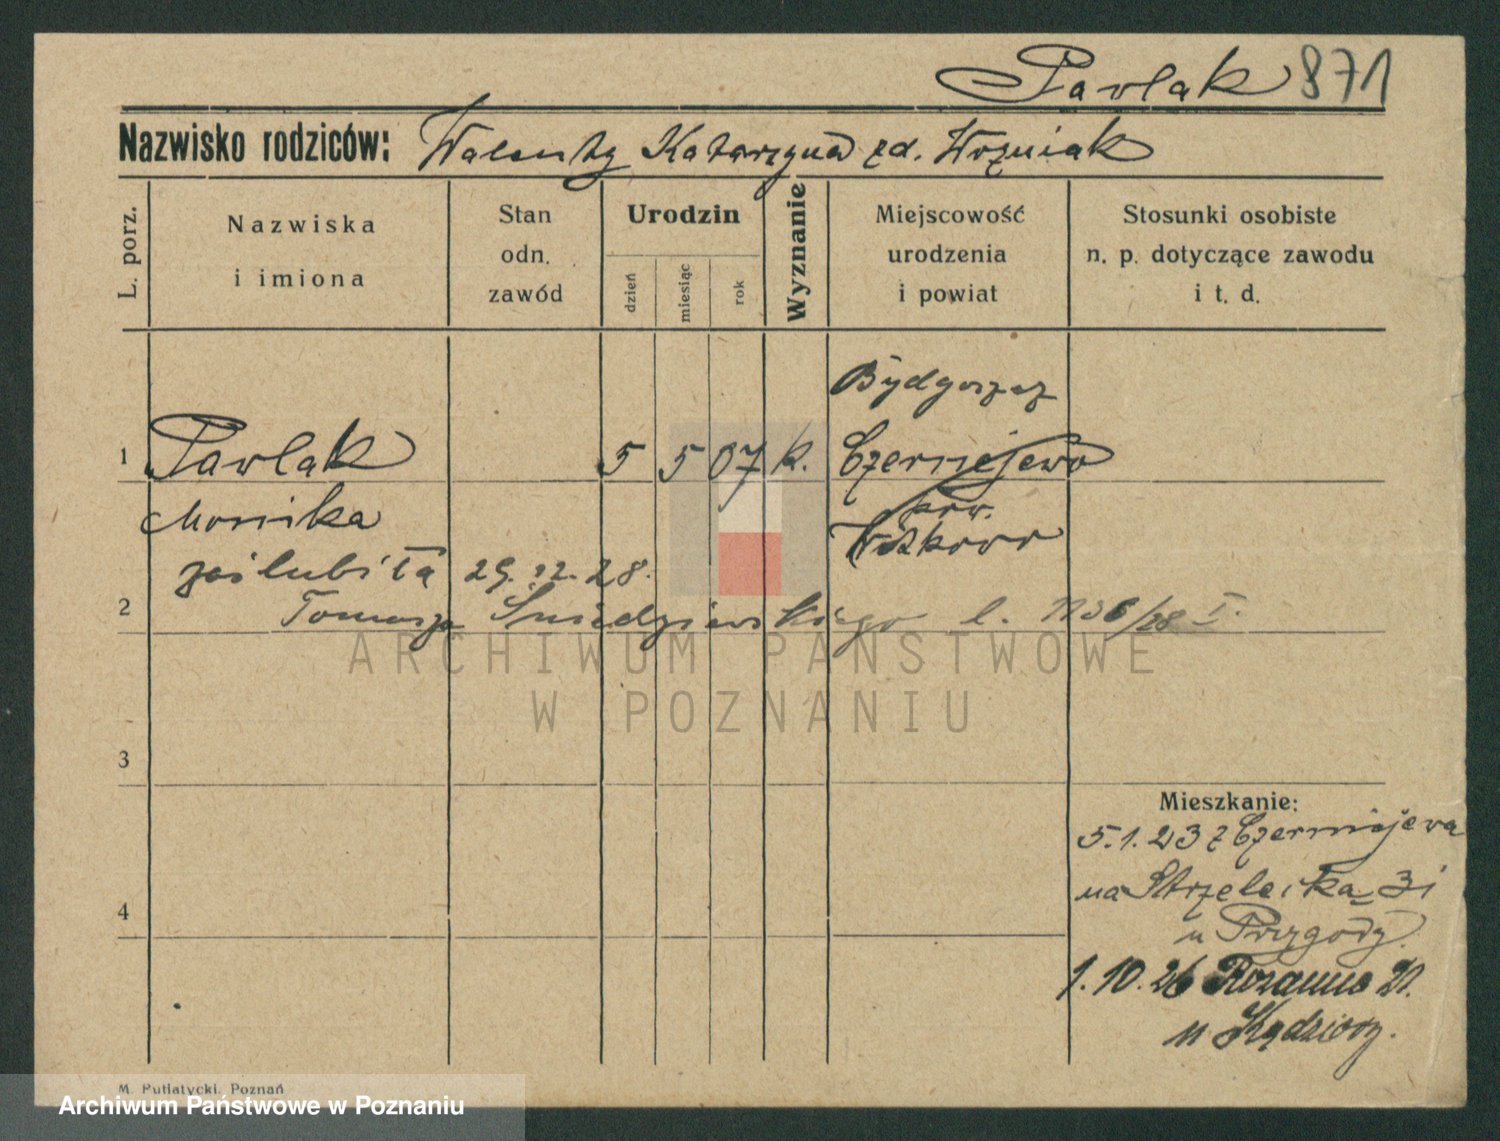 Pawlak 871
Nazwisko rodziców: Walenty Katarzyna zd. Woźniak
L. porz.
Nazwiska
i imiona
Stan
odn.
zawód
Urodzin
dzień
miesiąc
rok
Wyznanie
Miejscowość
urodzenia
i powiat
Stosunki osobiste
n. p. dotyczące zawodu
i t. d.
Bydgoszcz
1 Pawlak 5 5 07 k. Czerniejewo
Monika pow.
Witkowo
zaślubiła 29.12.28.
2 Tomasza Śniedziewskiego l. 1136/28 I.
ARCHIWUM PAŃSTWOWE
W POZNANIU
3
Mieszkanie:
5.1.23 z Czerniejewa
na Strzelecka 31
4
u Przygody.
1.10.26 21.
u Kędziory.
M. Putiatycki, Poznań
Archiwum Państwowe w Poznaniu